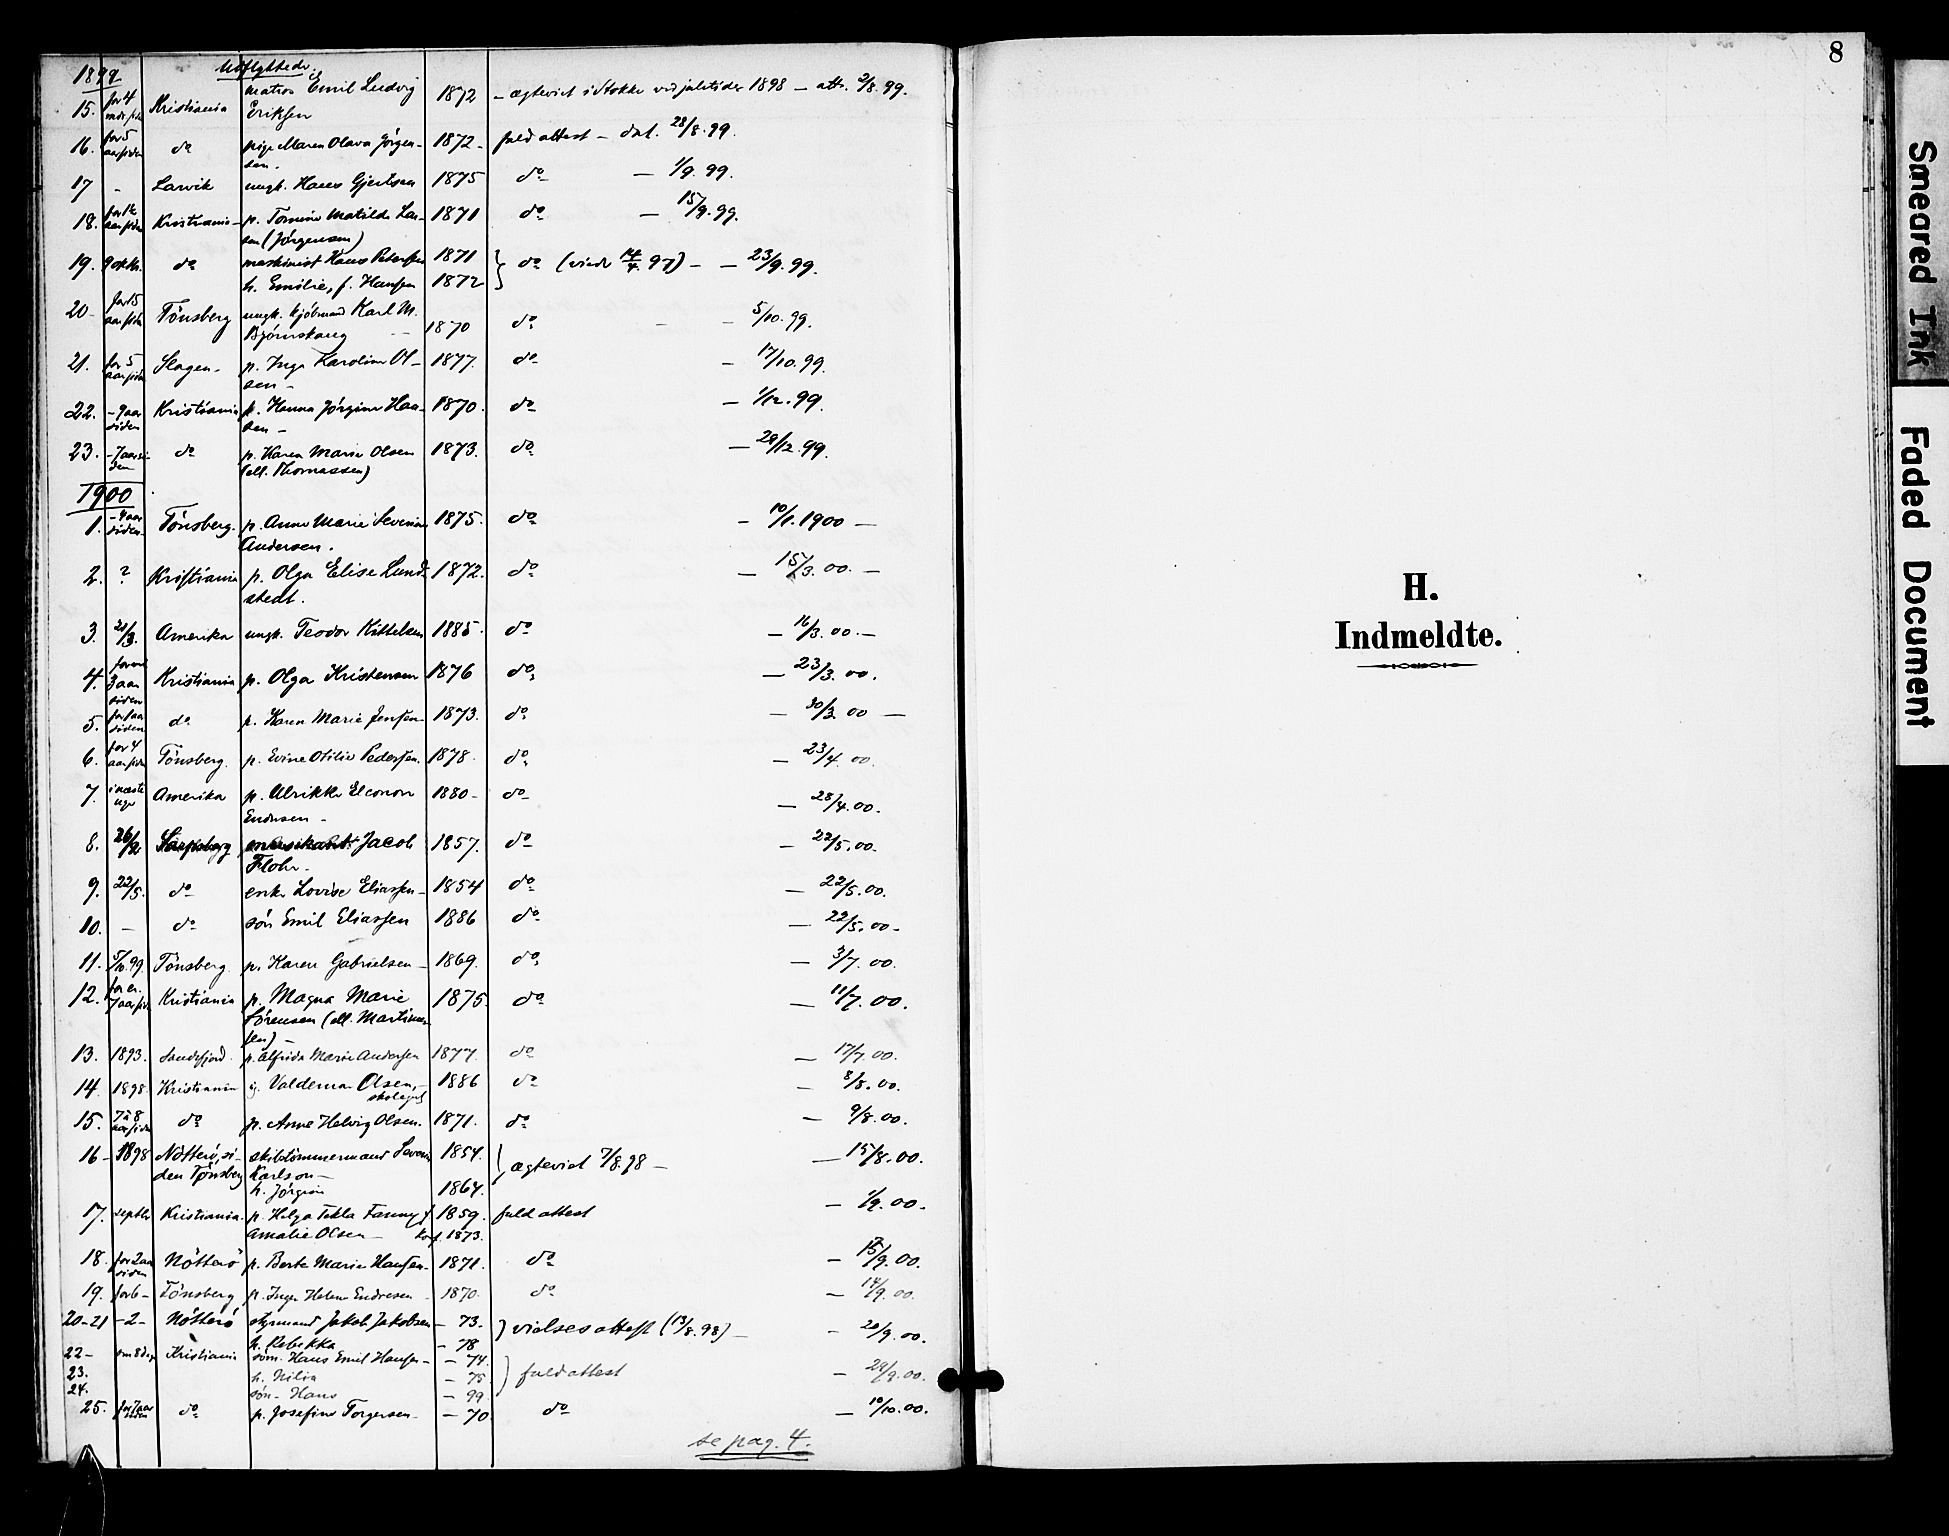 1899 Udflyttede.
15. for 4 Kristiania matros Emil Ludvig Eriksen 1872 – ægteviet i Stokke ved juletider 1898 – att. 2/8.99.
16. for 5 aar siden do pige Maren Olava Jörgensen. 1872 – fuld attest – dat. 28/8.99.
17 - Larvik ungk. Hans Gjertsen 1875 do – 1/9.99.
18. for 1½ aar siden Kristiania – p. Tomine Matilde Larsen (Jörgensen) 1871 do – 15/9.99.
19. 9 oktbr. do maskinist Hans Petersen 1871
h. Emilie, f. Hansen 1872 } do (viede 14/4.97) – – 23/9.99.
20 – for 15 aar siden Tönsberg ungk. kjöbmand Karl M. Bjørnskaug 1870 do – – 5/10.99.
21. for 5 aar siden Slagen – p. Inga Karoline Olsen – 1877. do – 17/10.99.
22. – 9 aar siden Kristiania p. Hanna Jörgine Hansen – 1870. do – 1/12.99.
23. – 7 aar siden do p. Karen Marie Olsen (ell. Thomassen) 1873. do – 28/12.99.
1900
1. – 4 aar siden – Tönsberg. p. Anne Marie Severine Andersen. 1875. do – 10/1.1900 –
2. ? Kristiania p. Olga Elise Lundstedt. 1872. do – 15/3.00. –
3. 21/3. Amerika ungk. Teodor Kittelsen 1885. do – 16/3.00. –
4. 3 aar siden Kristiania p. Olga Kristensen 1876 do – 23/3.00.
5. for 1 aar siden do p. Karen Marie Jensen 1873. do – 30/3.00 –
6. for 4 aar siden Tönsberg. p. Evine Otilie Pedersen. 1878. do – 23/4.00.
7. i næste uge Amerika p. Ulrikke Eleonore Endresen – 1880 – do – 28/4.00.
8. 26/2 Sarpsborg musikant Jacob Flohr. 1857. do – 22/5.00.
9. 22/5. do enke Lovise Eliassen – 1854 do – 22/5.00.
10. – do sön Emil Eliassen 1886 do – 22/5.00 –
11. 5/10.99. Tönsberg. p. Karen Gabrielsen – 1869. do – 3/7.00.
12. for ca. 7 aar siden Kristiania p. Magna Marie Sörensen (ell. Martinussen) – 1875. do – 11/7.00.
13. 1893. Sandefjord. p. Alfrida Marie Andersen 1877. do – 17/7.00.
14. 1898. Kristiania g. Valdemar Olsen, – 1886 do – 8/8.00.
15. 7 à 8 aar siden do p. Anne Helvig Olsen. 1871. do – 9/8.00.
16 – 1898 Nötterö, siden Tönsberg skibstömmermand Karlson – 1854.
h. Jörgine 1864. } ægteviet 7/8.98 – – 15/8.00.
17. septbr Kristiania. p. Helga Tekla Fanny Amalie Olsen – f 1859. konf. 1873. fuld attest – 1/9.00.
18. for 2 aar siden Nötterö p. Berte Marie Hansen – 1871. do – 15/9.00.
19. for 6 – Tönsberg p. Inga Helene Endresen – 1870. do – 14/9.00.
20–21 – 2 – Nötterö styrmand Jakob Jakobsen – 73.
h. Rebekka – 78 } vielsesattest (13/8.98) – – 20/9.00.
22 – om 8 dage Kristiania söm. Hans Emil Hansen – – 74.
23. h. Nilia – 75
24. sön – Hans – 99. } fuld attest – 28/9.00.
25. for 7 aar siden do p. Josefine Torgersen – – 70. do – 10/10.00.
se pag. 4.
8
H.
Indmeldte.
Smeared Ink
Faded Document